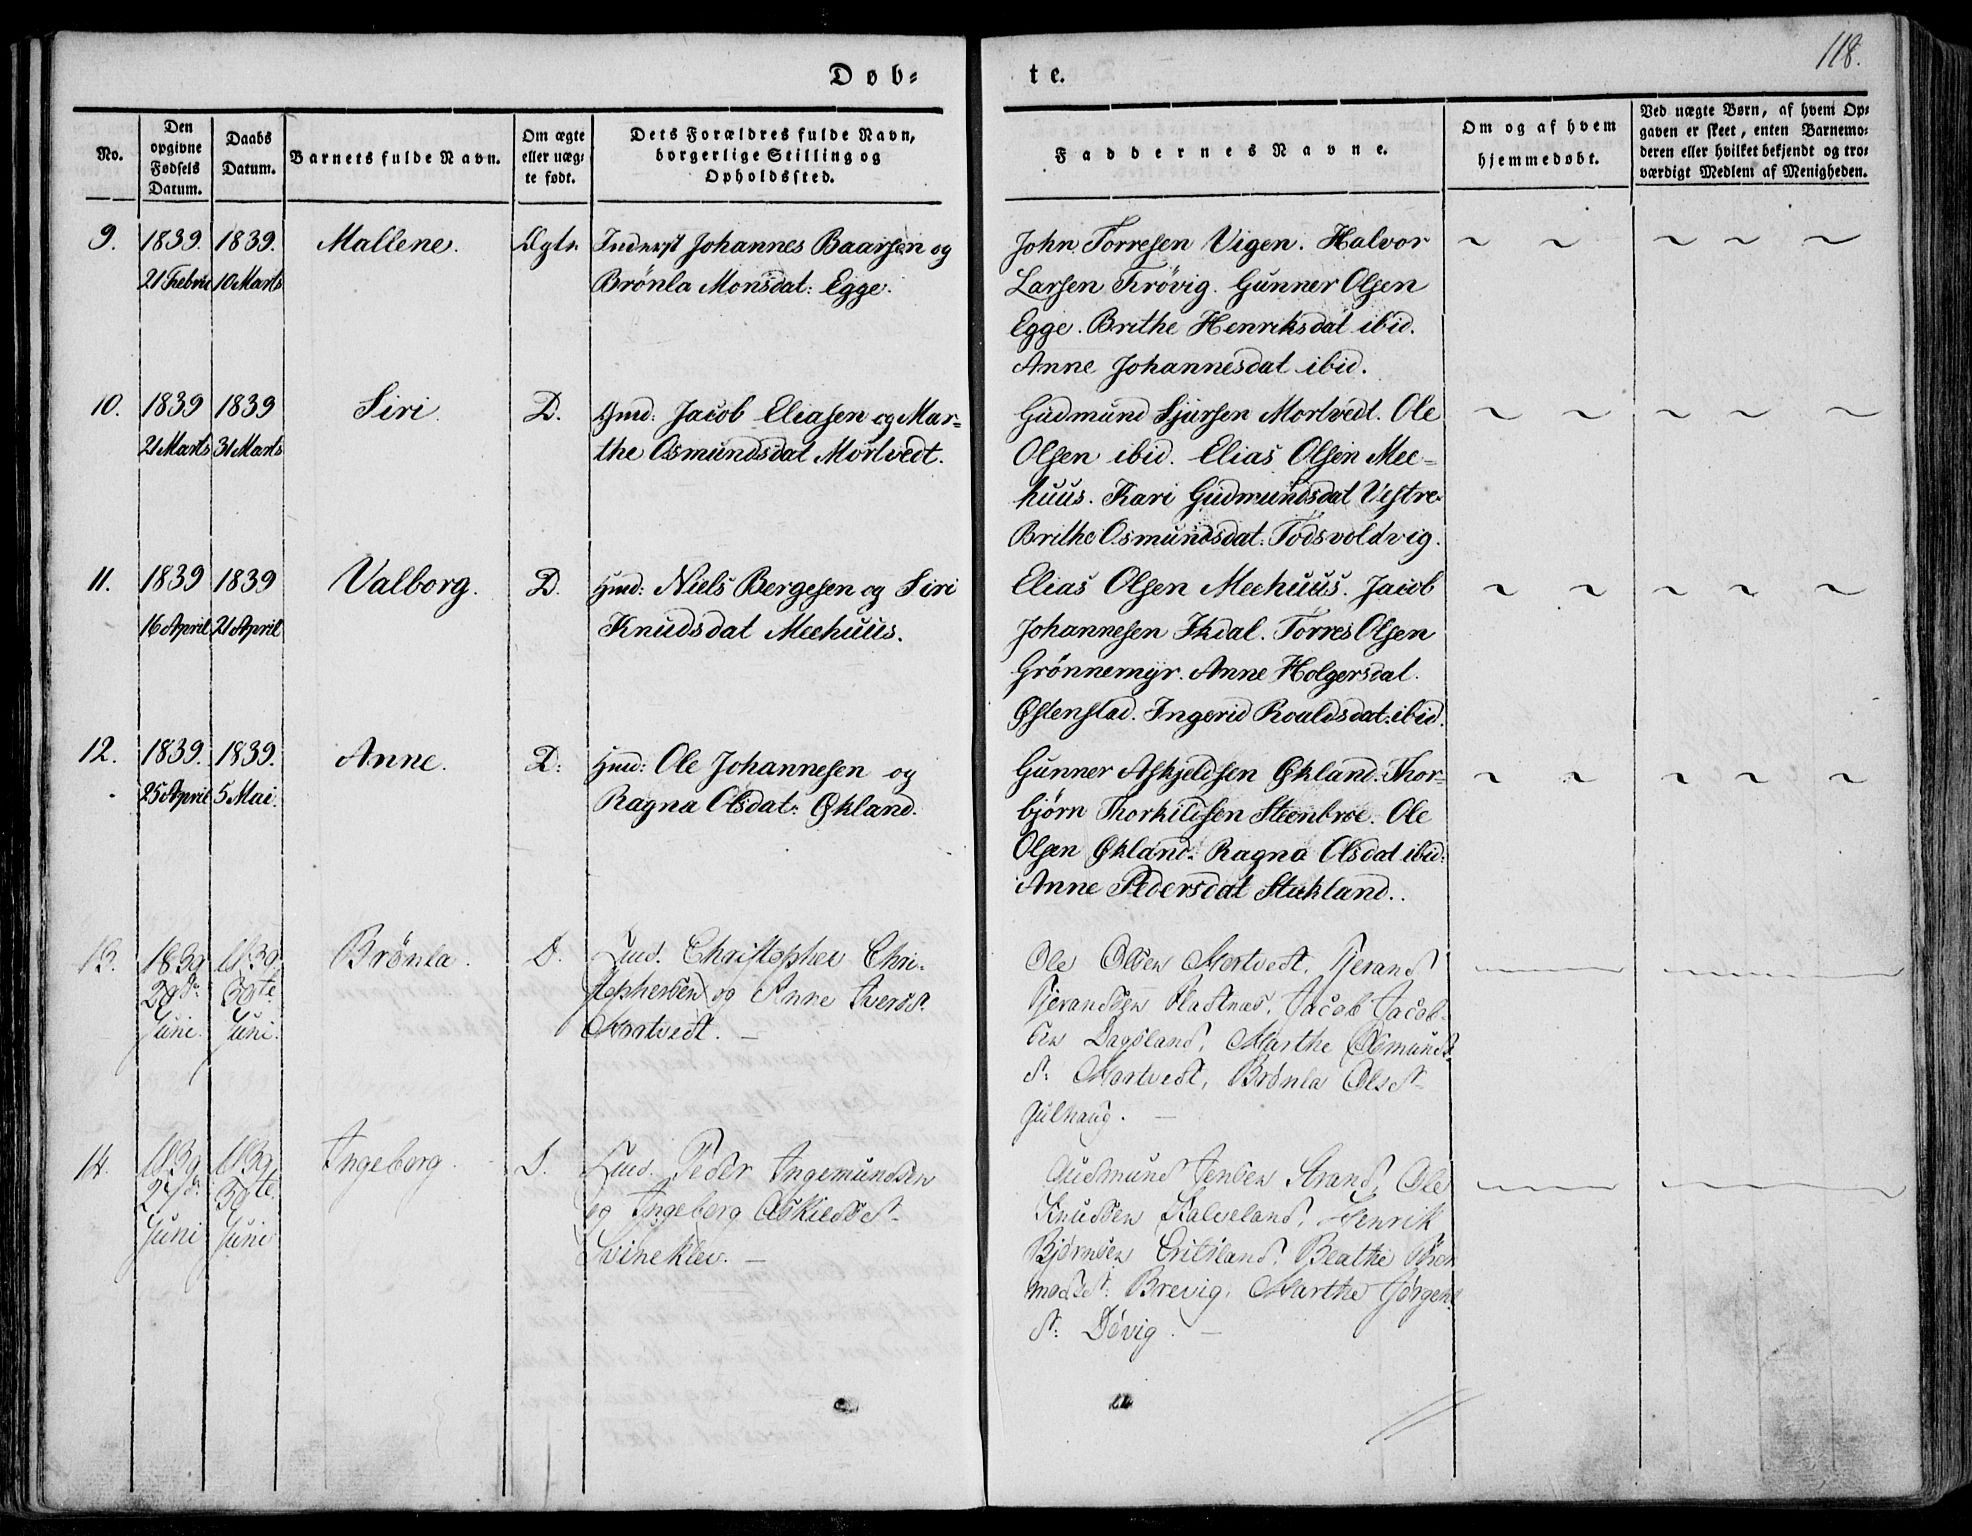 118.
Døb-
te.
No.
Den opgivne Fødsels Datum.
Daabs Datum.
Barnets fulde Navn.
Om ægte eller uæg-te født.
Dets Forældres fulde Navn, borgerlige Stilling og Opholdssted.
Faddernes Navne.
Om og af hvem hjemmedøbt.
Ved uægte Børn, af hvem Op-gaven er skeet, enten Barnemo-deren eller hvilket bekjendt og tro-værdigt Medlem af Menigheden.
9.
1839.
21 Febru
1839.
10 Marts
Mallene.
Ægte
Inderst Johannes Baarsen og
Brönla Monsdat: Egge.
John Torresen Vigen. Halvor
Larsen Trövig. Gunner Olsen
Egge. Brithe Henriksdat ibid.
Anne Johannesdat ibid.
10.
1839
21 Marts
1839
31 Marts
Siri.
D.
Gmd: Jacob Eliasen og Mar-
the Osmundsdat Mortvedt.
Gudmund Sjursen Mortvedt. Ole
Olsen ibid. Elias Olsen Mee-
huus. Kari Gudmundsdat Vestre-
Brithe Osmundsdat: Todsvoldvig.
11.
1839
16 April
1839
21 April
Valborg.
D.
Gmd: Niels Bergesen og Siri
Knudsdat Meehuus.
Elias Olsen Meehuus. Jacob
Johannesen Ikdal. Torres Olsen
Grönnemyr. Anne Holgersdat.
Østenstad. Ingerid Roaldsdat: ibid.
12.
1839.
25 April
1839.
5 Mai.
Anne.
D:
Gmd: Ole Johannesen og
Ragna Olsdat: Økland.
Gunner Askjeldsen Økland. Thor-
bjørn Thorkildsen Steenbroe. Ole
Olsen Økland. Ragna Olsdat ibid:
Anne Pedersdat Stukland.
13.
1839
29de
Juni.
1839
30te
Juni.
Brönla.
D.
Gmd. Christopher Chri-
stophersen og Anne Iversd.
Mortvedt. –
Ole Olsen Mortvedt, Tjerand
Tjerandsen Hadtnæs, Jacob Jacob-
sen Dagsland, Marthe Osmunds
d: Mortvedt, Brønla Olsd.
Gulhaug. –
14.
1839
27de
Juni
1839
30te
Juni
Ingeborg.
D.
Gmd. Peder Ingemundsen
og Ingeborg Askildsd.
Svineklev. –
Gudmund Jensen Strand, Ole
Knudsen Kalveland, Henrik
Bjørnsen Eritsland, Beathe Thor
modsd: Brevig, Marthe Jörgens
d: Dövig. –